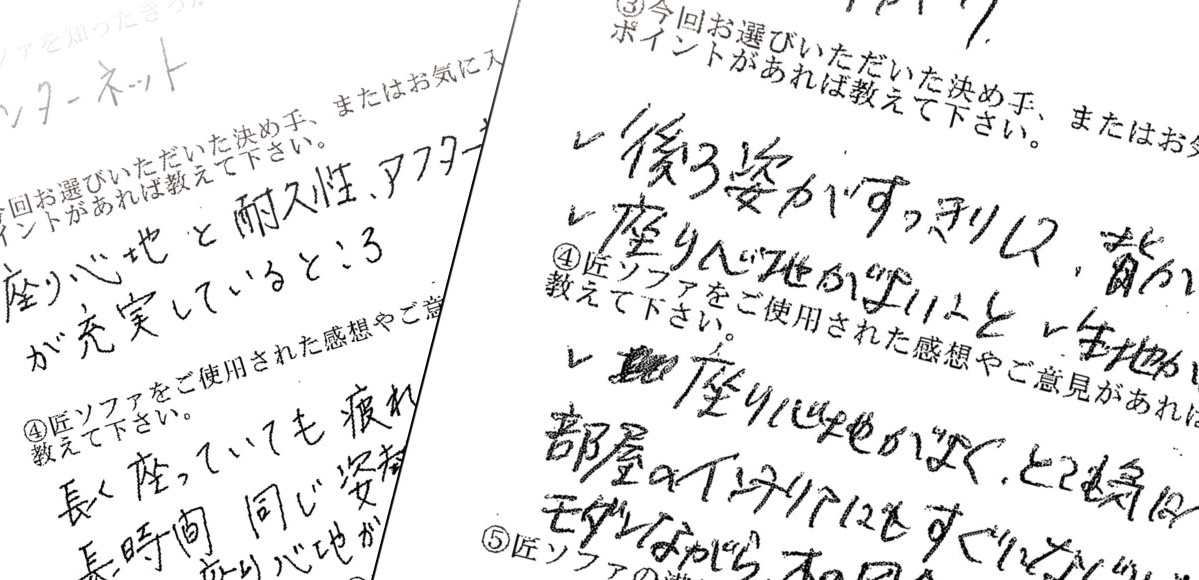 ファを知ったきっか
ンターネット
今回お選びいただいた決め手、またはお気に入
イントがあれば教えて下さい。
座り心地と耐久性、アフター
が充実しているところ
④匠ソファをご使用された感想やご意
教えて下さい。
長く座っていても疲れ
長時間 同じ姿勢
座り心地が
③今回お選びいただいた決め手、またはお気
ポイントがあれば教えて下さい。
✓後ろ姿がすっきりして、背が
✓座り心地がよいこと ✓生地が
④匠ソファをご使用された感想やご意見があれば
教えて下さい。
✓座り心地がよく、とても気に
部屋のインテリアにもすぐになじ
モダンながら、
⑤匠ソファの